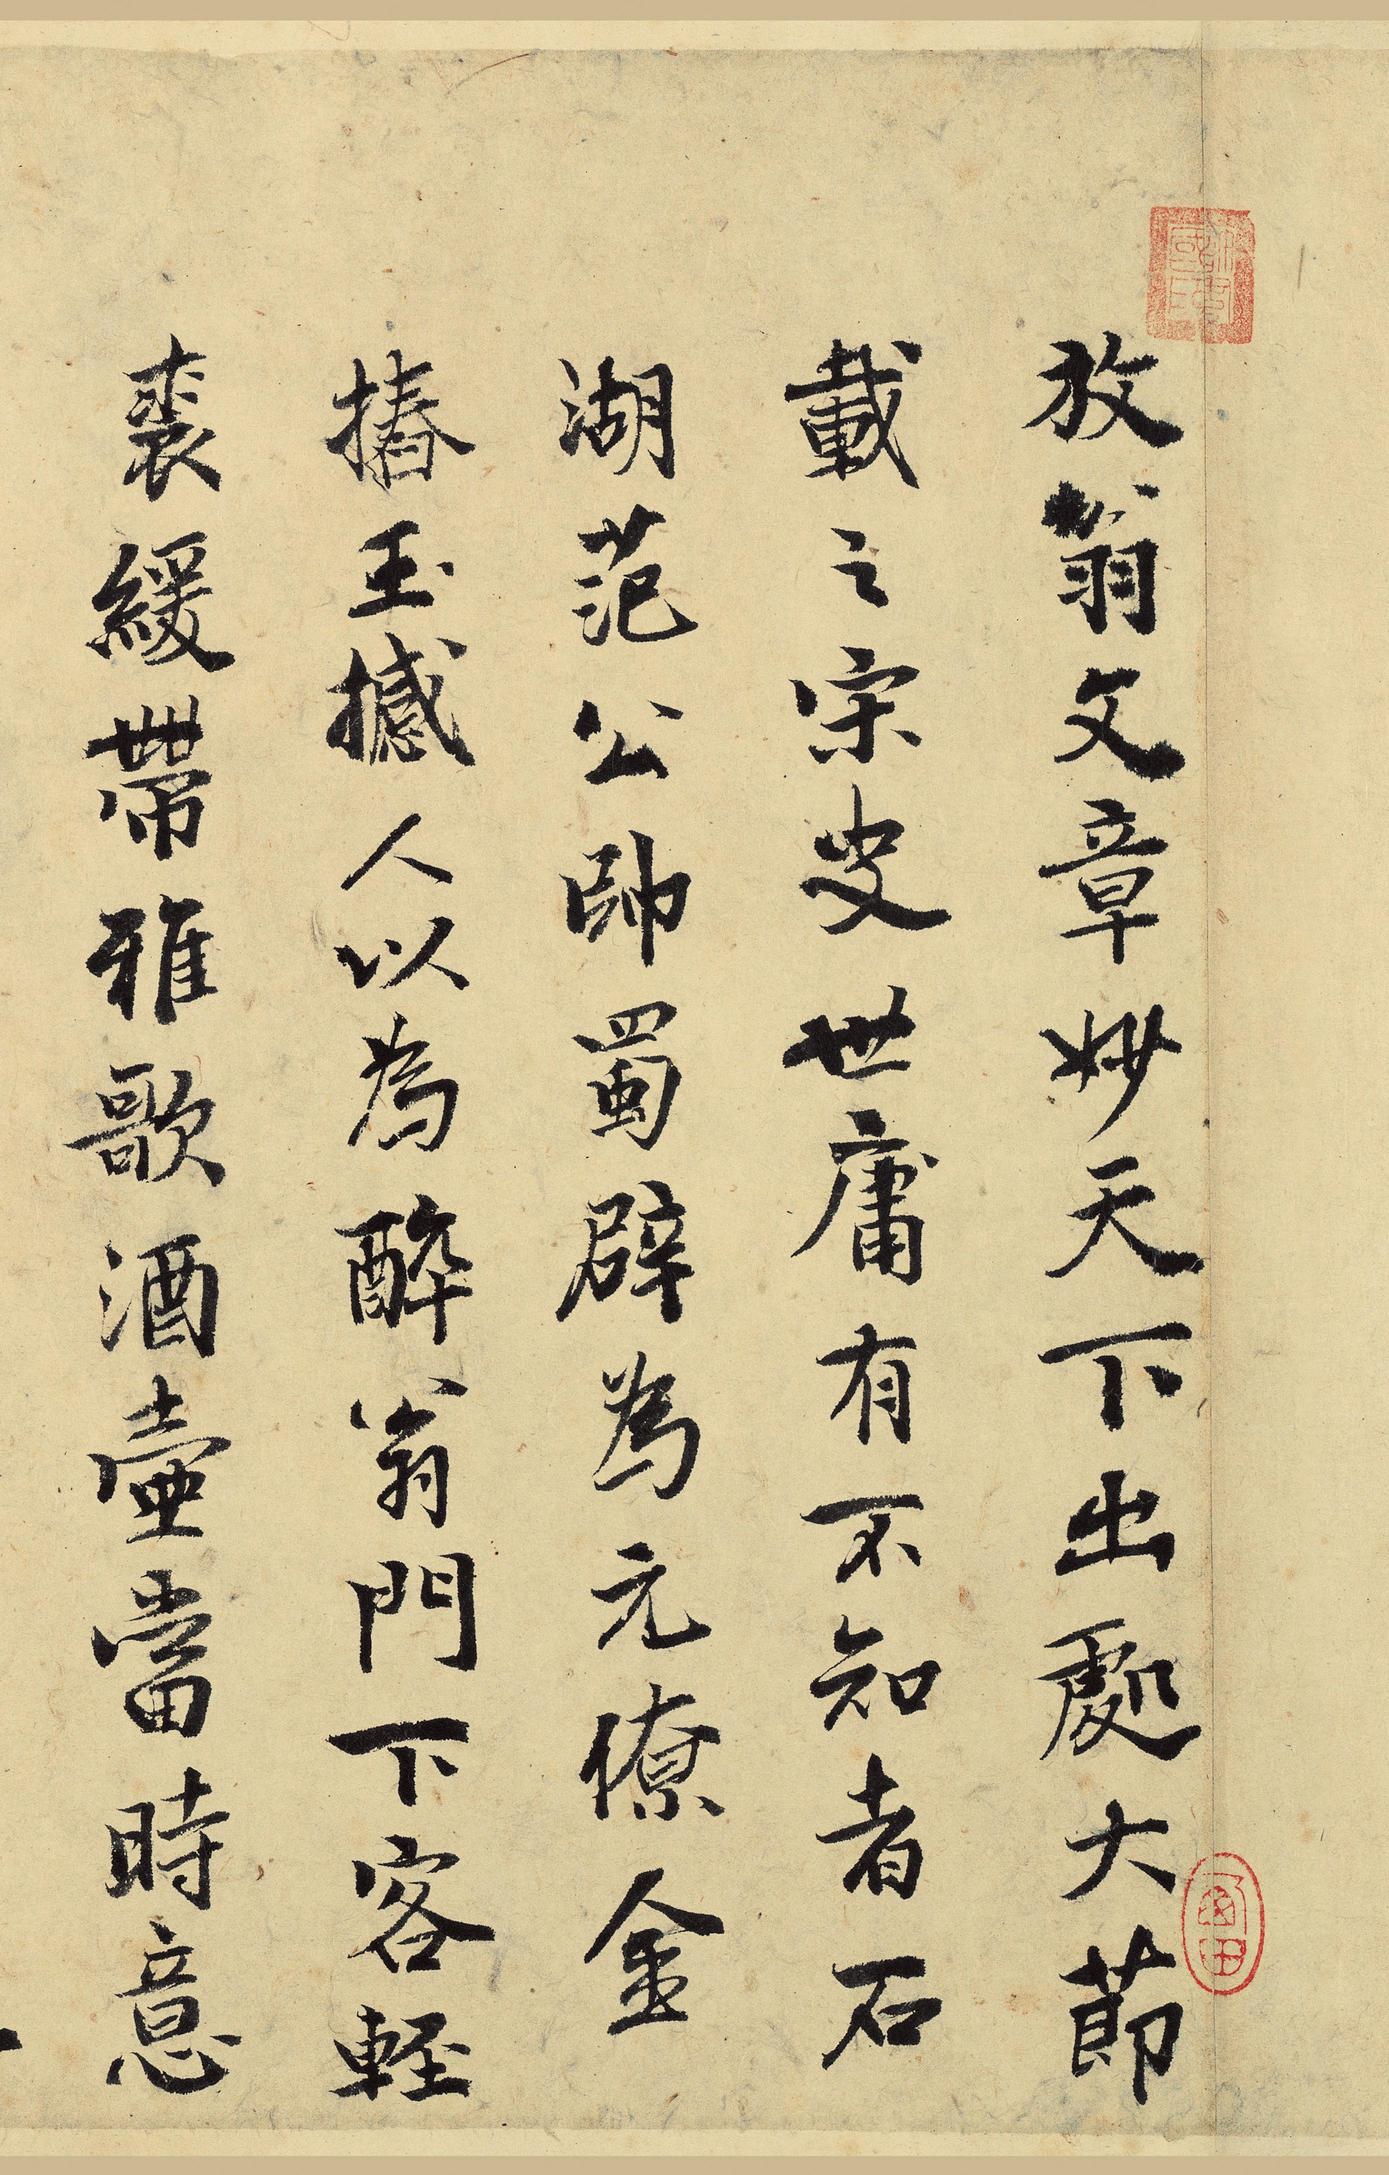 放翁文章妙天下出處大節
載之宋史世庸有不知者石
湖范公帥蜀辟為元僚金
摏玉撼人以為醉翁門下客軽
裘緩帶雅歌酒壷當時意